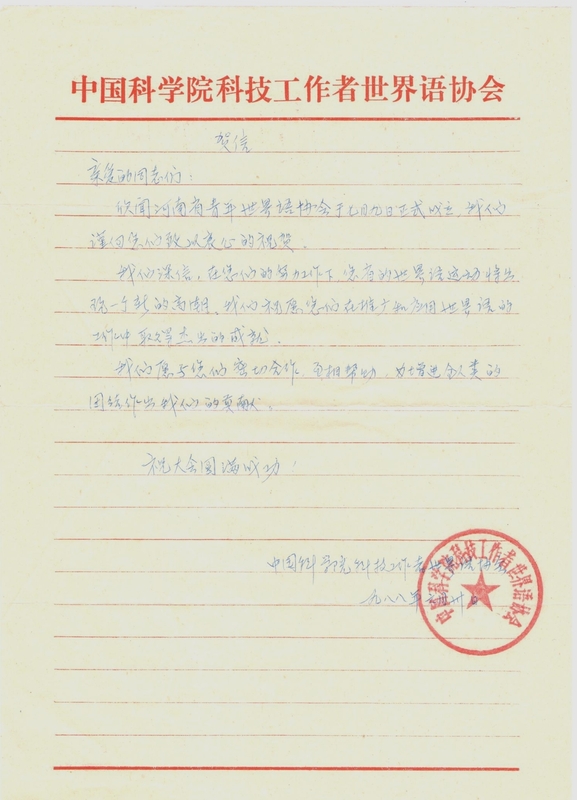 中国科学院科技工作者世界语协会
贺信
亲爱的同志们：
欣闻河南省青年世界语协会于七月九日正式成立，我们
谨向您们致以衷心的祝贺。
我们深信，在您们的努力工作下，您省的世界语运动将出
现一个新的高潮。我们祝愿您们在推广和应用世界语的
工作中取得杰出的成就。
我们愿与您们密切合作，互相帮助，为增进全人类的
团结作出我们的贡献。
祝大会圆满成功！
中国科学院科技工作者世界语协会
一九八八年六月卅日
中国科学院科技工作者世界语协会